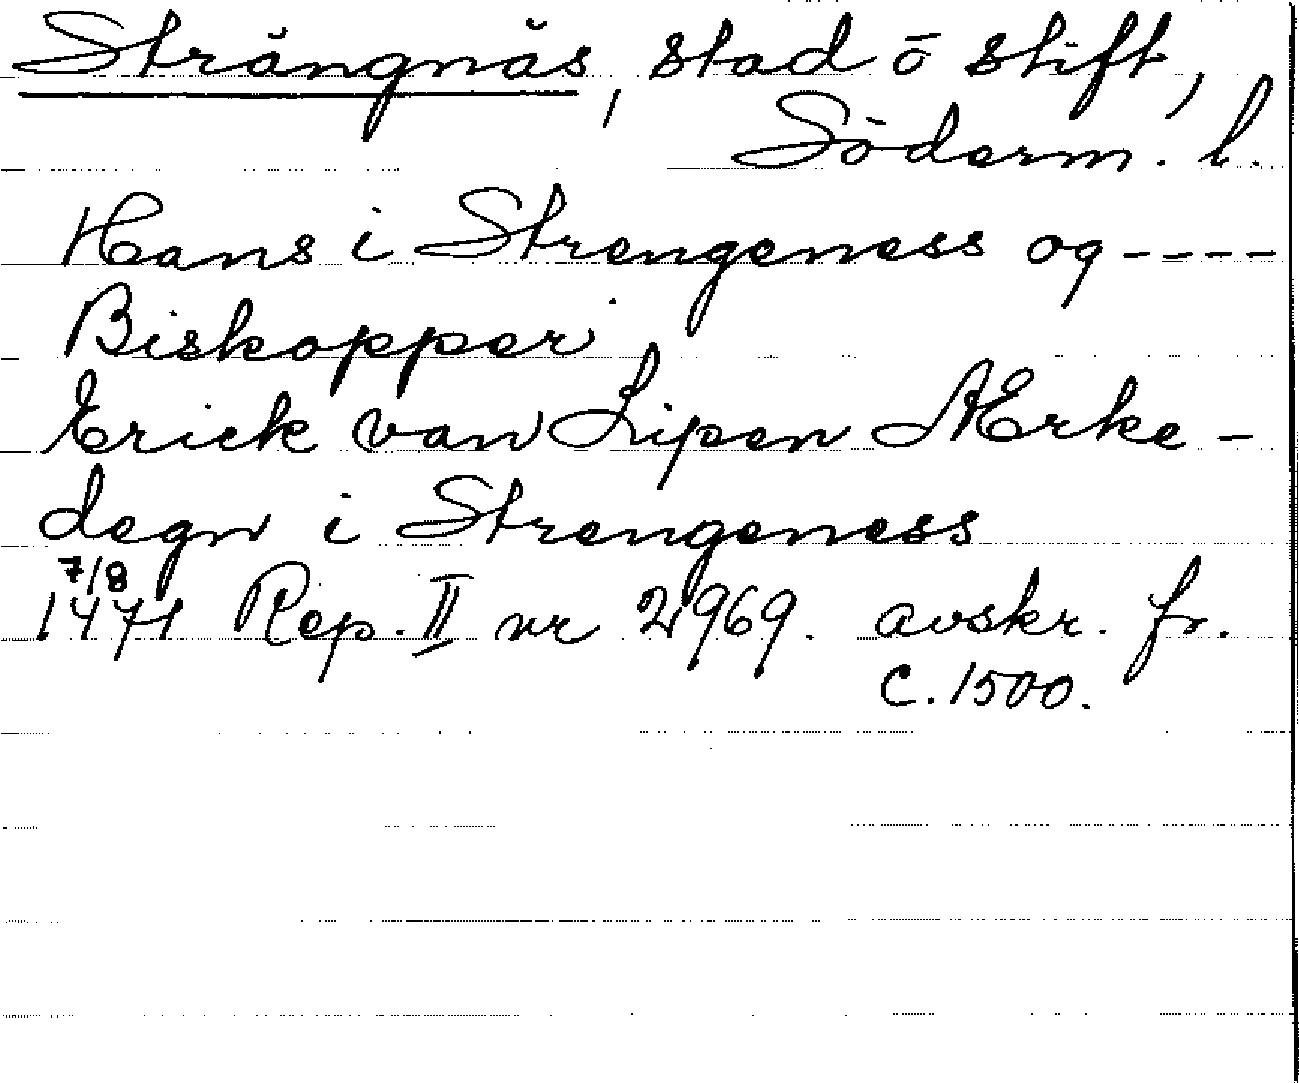 Strängnäs, stad o stift,
Söderm. l.
Hans i Strengeness og ----
Biskopper
Erick van Lipen Ærke-
degn i Strengeness
7/8
1471 Rep. II nr 2969. avskr. fr.
c. 1500.